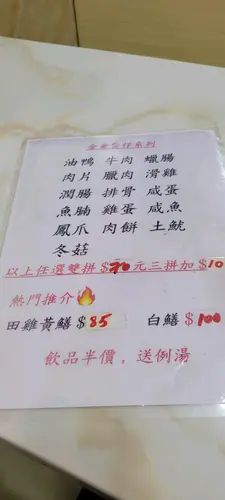 油鴨 牛肉 蠟腸
肉片 臘肉 滑雞
潤腸 排骨 咸蛋
魚腩 雞蛋 咸魚
鳳爪 肉餅 土魷
冬菇
以上任選雙拼$70元三拼加$10
熱門推介
田雞黃鱔$85 白鱔$100
飲品半價,送例湯